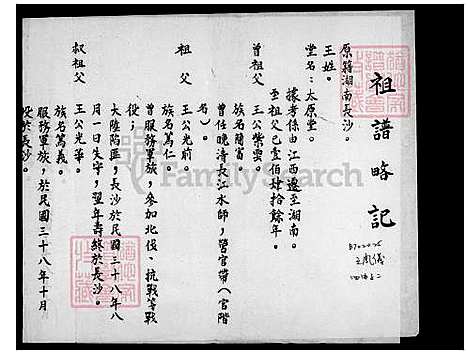 祖譜略記
原籍湖南長沙。
王姓。
堂名:太原堂。
據考係由江西遷至湖南。
至祖父已壹佰肆拾餘年。
曾祖父
王公紫雲
族名簡富。
曾任晚清長江水師,營官帶(官階名)。
祖父
王公光前。
族名篤仁。
曾服務軍旅;參加北伐、抗戰等戰役;
大陸陷匪;長沙於民國三十八年八月一日失守;翌年壽終於長沙。
叔祖父
王公光華。
族名篤義。
服務軍旅,於民國三十八年十月歿於長沙。
FamilySearch